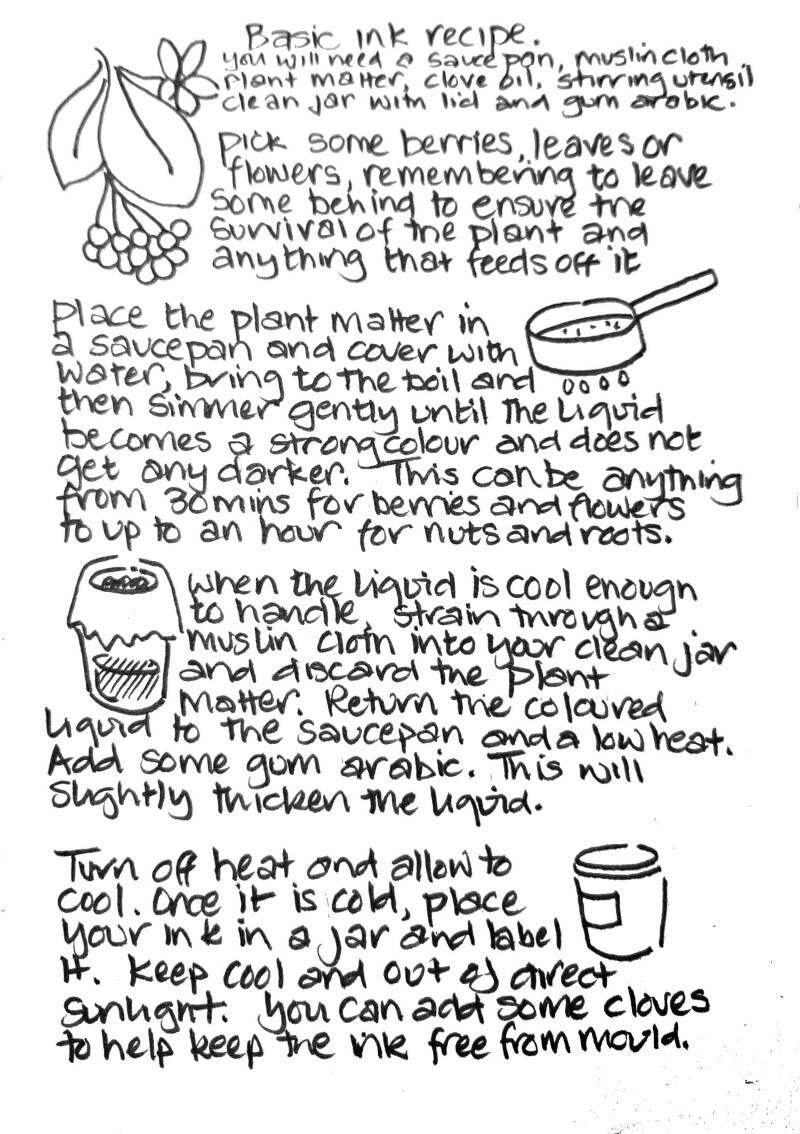 Basic ink recipe.
you will need a saucepan, muslin cloth
plant matter, clove oil, stirring utensil
clean jar with lid and gum arabic.
pick some berries, leaves or
flowers, remembering to leave
some behing to ensure the
survival of the plant and
anything that feeds off it
Place the plant matter in
a saucepan and cover with
water, bring to the boil and
then simmer gently until the liquid
becomes a strong colour and does not
get any darker. This can be anything
from 30 mins for berries and flowers
to up to an hour for nuts and roots.
when the liquid is cool enough
to handle, strain through a
muslin cloth into your clean jar
and discard the plant
matter. Return the coloured
liquid to the saucepan and a low heat.
Add some gum arabic. This will
slightly thicken the liquid.
Turn off heat and allow to
cool. Once it is cold, place
your ink in a jar and label
it. Keep cool and out of direct
sunlight. You can add some cloves
to help keep the ink free from mould.